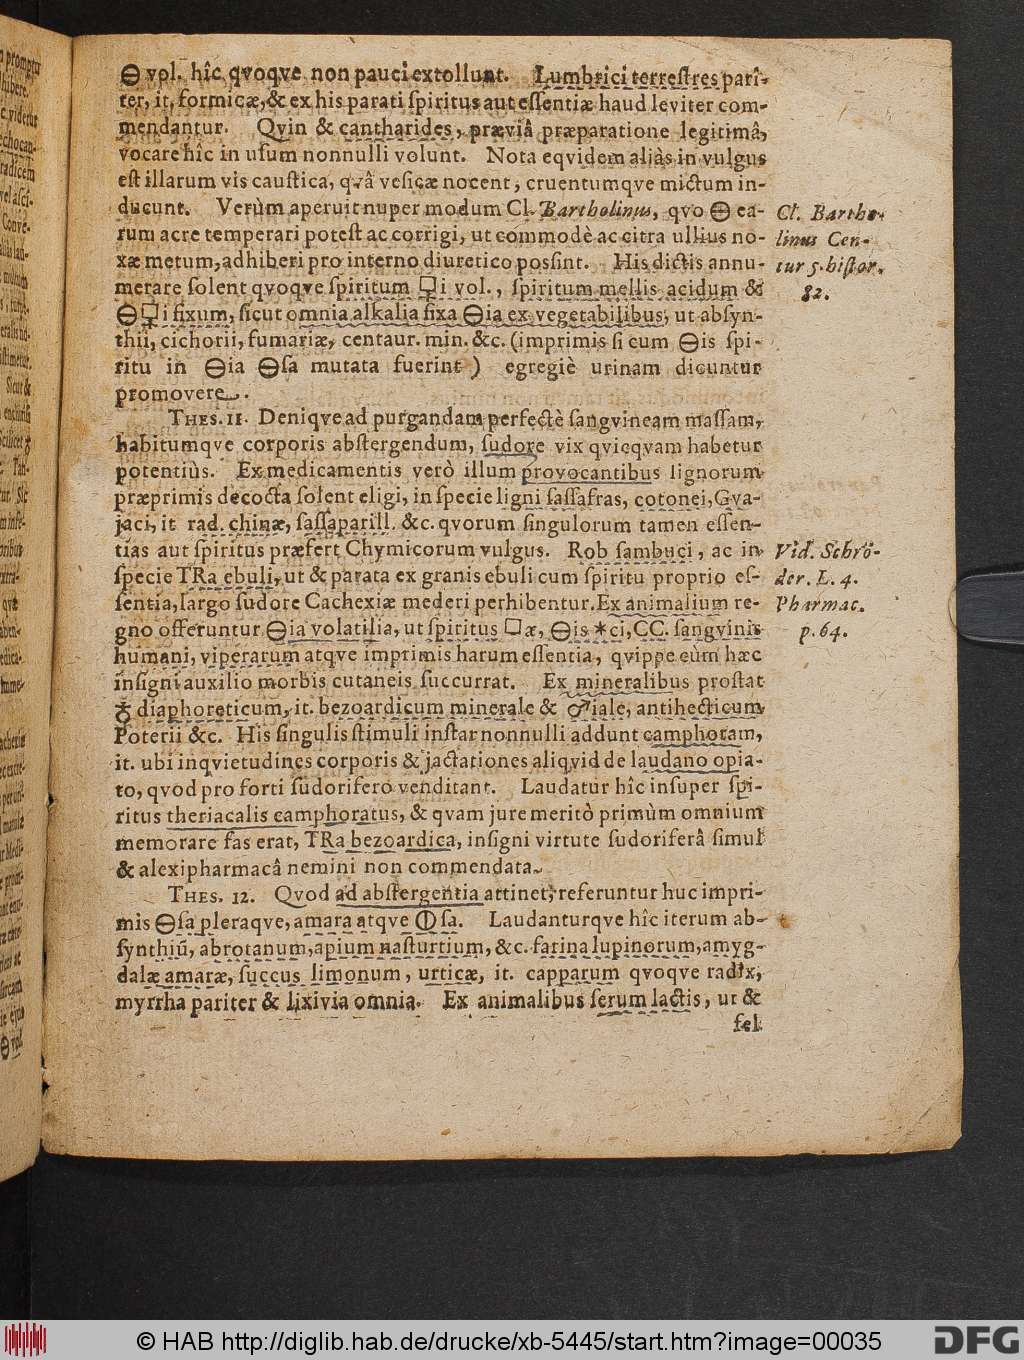 🜔 vol. hîc qvoqve non pauci extollunt. Lumbrici terrestres pari-
ter, it, formicæ, & ex his parati spiritus aut essentiæ haud leviter com-
mendantur. Qvin & cantharides, præviâ præparatione legitimâ,
vocare hîc in usum nonnulli volunt. Nota eqvidem aliàs in vulgus
est illarum vis caustica, qvâ vesicæ nocent, cruentumqve mictum in-
ducunt. Verùm aperuit nuper modum Cl. Bartholinus, qvo 🜔 ea-
rum acre temperari potest ac corrigi, ut commodè ac citra ullius no-
xæ metum, adhiberi pro interno diuretico possint. His dictis annu-
merare solent qvoqve spiritum 🜿i vol., spiritum mellis acidum &
🜔 🜿i fixum, sicut omnia alkalia fixa 🜔ia ex vegetabilibus, ut absyn-
thii, cichorii, fumariæ, centaur. min. &c. (imprimis si cum 🜔is spi-
ritu in 🜔ia 🜔sa mutata fuerint) egregiè urinam dicuntur
promovere.
THES. 11. Deniqve ad purgandam perfectè sangvineam massam,
habitumqve corporis abstergendum, sudore vix qvicqvam habetur
potentiùs. Ex medicamentis verò illum provocantibus lignorum
præprimis decocta solent eligi, in specie ligni sassafras, cotonei, Gva-
jaci, it rad. chinæ, sassaparill. &c. qvorum singulorum tamen essen-
tias aut spiritus præfert Chymicorum vulgus. Rob sambuci, ac in
specie TRa ebuli, ut & parata ex granis ebuli cum spiritu proprio es-
sentia, largo sudore Cachexiæ mederi perhibentur. Ex animalium re-
gno offeruntur 🜔ia volatilia, ut spiritus □æ, 🜔is ✶ci, CC. sangvinis
humani, viperarum atqve imprimis harum essentia, qvippe cùm hæc
insigni auxilio morbis cutaneis succurrat. Ex mineralibus prostat
♁ diaphoreticum, it. bezoardicum minerale & ♂iale, antihecticum
Poterii &c. His singulis stimuli instar nonnulli addunt camphoram,
it. ubi inqvietudines corporis & jactationes aliqvid de laudano opia-
to, qvod pro forti sudorifero venditant. Laudatur hîc insuper spi-
ritus theriacalis camphoratus, & qvam jure meritò primùm omnium
memorare fas erat, TRa bezoardica, insigni virtute sudoriferâ simul
& alexipharmacâ nemini non commendata.
THES. 12. Qvod ad abstergentia attinet, referuntur huc impri-
mis 🜔sa pleraqve, amara atqve 🜕sa. Laudanturqve hîc iterum ab-
synthiũ, abrotanum, apium nasturtium, &c. farina lupinorum, amyg-
dalæ amaræ, succus limonum, urticæ, it. capparum qvoqve radix,
myrrha pariter & lixivia omnia. Ex animalibus serum lactis, ut &
fel
Cl. Bartho-
linus Cen-
tur 5. histor.
82.
Vid. Schrö-
der. L. 4.
Pharmac.
p. 64.
© HAB http://diglib.hab.de/drucke/xb-5445/start.htm?image=00035
DFG